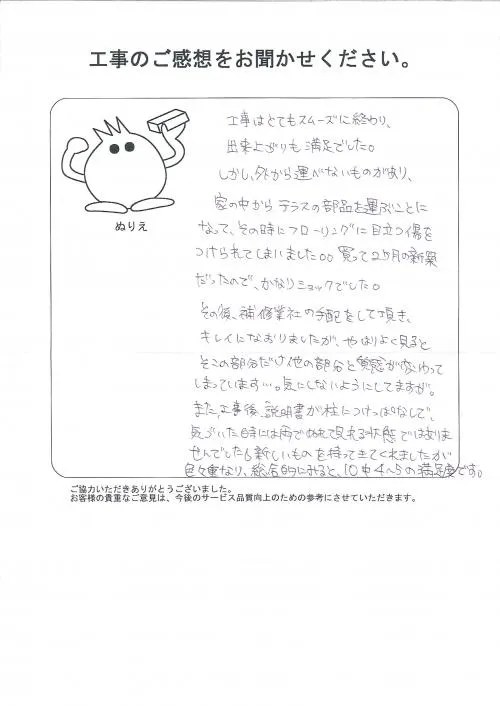 工事のご感想をお聞かせください。
ぬりえ
工事はとてもスムーズに終わり、
出来上がりも満足でした。
しかし、外から運べないものがあり、
家の中からテラスの部品を運ぶことに
なって、その時にフローリングに目立つ傷を
つけられてしまいました。。買って2ヶ月の新築
だったので、かなりショックでした。
その後、補修業社の手配をして頂き、
キレイになおりましたが、やはりよく見ると
そこの部分だけ他の部分と質感が変わって
しまっています…。気にしないようにしてますが。
また、工事後、説明書が柱につけっぱなしで、
気づいた時には雨でぬれて見れる状態ではありま
せんでした。新しいものを持ってきてくれましたが
色々重なり、総合的にみると、10中4〜5の満足度です。
ご協力いただきありがとうございました。
お客様の貴重なご意見は、今後のサービス品質向上のための参考にさせていただきます。